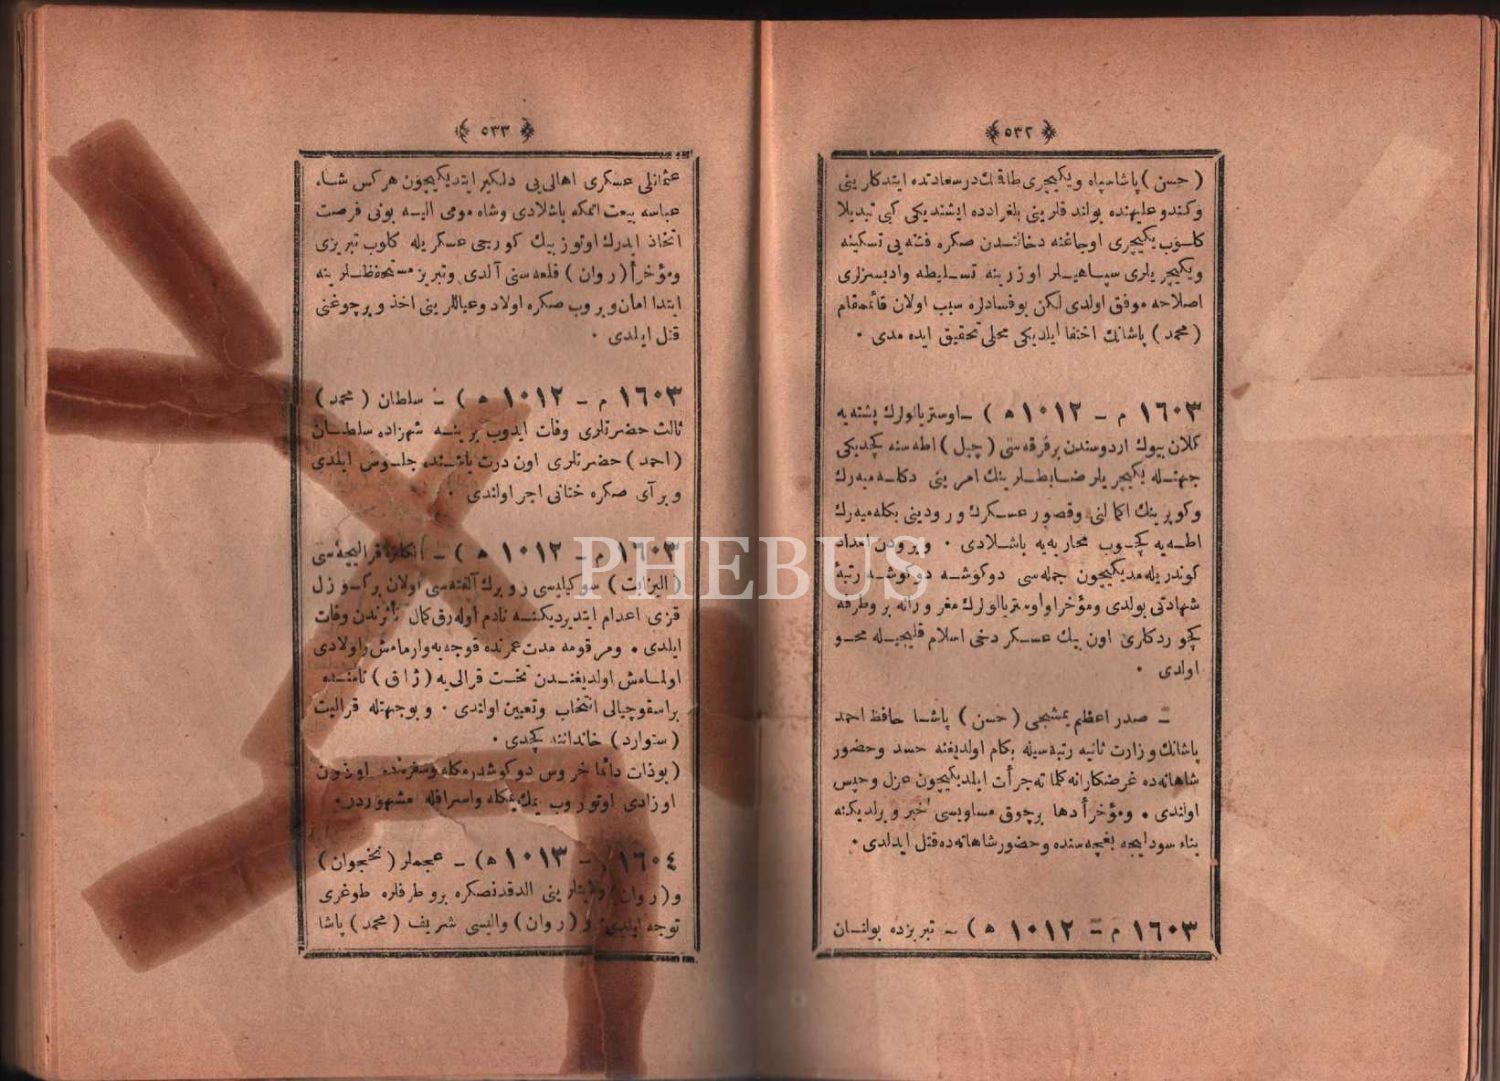 ﴿ ٥٣٢ ﴾
( حسن ) پاشا سپاه و یكیچری طاقنك درسعادتده ایتدكلرینی
و كندو علیهنده بولند قلرینی بلغرادده ایشتدیكی كبی تبدیلا
كلوب یكیچری اوجاغنه دخالتدن صكره فتنه یی تسكینه
و یكیچریلری سپاهیلر اوزرینه تسلیطه وادبسزلری
اصلاحه موفق اولدی لكن بوفسادلره سبب اولان قائمقام
( محمد ) پاشانك اختفا ایلدیكی محلی تحقیق ایده مدی ٠
١٦٠٣ م – ١٠١٢ ه ) – اوستریالولرك پشته یه
كلان بیوك اردوسندن برفرقه سی ( چپل ) اطه سنه كچدیكی
جهتله یكیچریلر ضابطلرینك امرینی دكله میه رك
وكوپرینك اكمالنی وقصور عسكرك ورودینی بكله میه رك
اطه یه كچوب محاربه یه باشلادی ٠ وبرودن امداد
كوندریله مدیكیچون جمله سی دوكوشه دوكوشه رتبۀ
شهادتی بولدی ومؤخرا اوستریالولرك مغرورانه بروطرفه
كچوردكلری اون بیك عسكر دخی اسلام قلیجیله محو
اولدی ٠
– صدر اعظم یمشیجی ( حسن ) پاشا حافظ احمد
پاشانك وزارت ثانیه رتبه سیله بكام اولدیغنه حسد وحضور
شاهانه ده غرضكارانه كلماته جرأت ایلدیكیچون عزل وحبس
اولندی ٠ ومؤخراً دها برچوق مساویسی خبر ویرلدیكنه
بناء سودلیجه بغچه سنده وحضور شاهانه ده قتل ایدلدی ٠
١٦٠٣ م – ١٠١٢ ه ) – تبریزده بولنان
﴿ ٥٣٣ ﴾
عثمانلی عسكری اهالی یی دلگیر ایتدیكیچون هركس شاه
عباسه بیعت ایتمكه باشلادی وشاه مومی الیه بونی فرصت
اتخاذ ایدرك اوتوز بیك كورجی عسكریله كلوب تبریزی
ومؤخراً ( روان ) قلعه سنی آلدی وتبریز مستحفظلرینه
ابتدا امان ویروب صكره اولاد وعیاللرینی اخذ وبرچوغنی
قتل ایلدی ٠
١٦٠٣ م – ١٠١٢ ه ) – سلطان ( محمد )
ثالث حضرتلری وفات ایدوب یرینه شهزاده سلطان
( احمد ) حضرتلری اون درت یاشنده جلوس ایلدی
وبرآی صكره ختانی اجرا اولندی ٠
١٦٠٣ م – ١٠١٢ ه ) – انكلتره قرالیچه سی
( الیزابت ) سوكیلیسی روبرك آلفته سی اولان بركوزل
قزی اعدام ایتدیردیكنه نادم اوله رق كمال تأثرندن وفات
ایلدی ٠ ومرقومه مدت عمرنده قوجه یه وارمامش واولادی
اولمامش اولدیغندن تخت قرالی یه ( ژاق ) نامنده
براسقوچیالی انتخاب وتعیین اولندی ٠ وبوجهتله قرالیت
( ستوارد ) خاندانه كچدی ٠
( بوذات دائما خروس دوكوشدرمكله وسفرنده اوزون
اوزادی اوتوروب یمك یمكله واسرافله مشهوردر ٠
١٦٠٤ م – ١٠١٣ ه ) – عجملر ( نخجوان )
و ( روان ) ولایتلرینی الدقدنصكره بروطرفلره طوغری
توجه ایلدی ٠ و ( روان ) والیسی شریف ( محمد ) پاشا
PHEBUS